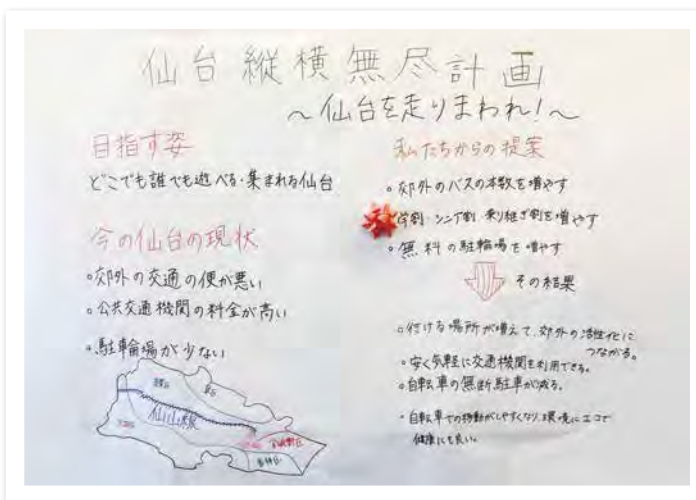 仙台縦横無尽計画
～仙台を走りまわれ!～
目指す姿
どこでも誰でも遊べる・集まれる仙台
今の仙台の現状
・郊外の交通の便が悪い
・公共交通機関の料金が高い
・駐輪場が少ない
仙山線
私たちからの提案
・郊外のバスの本数を増やす
学割・シニア割 乗り継ぎ割を増やす
・無料の駐輪場を増やす
その結果
・行ける場所が増えて、郊外の活性化に
つながる。
・安く気軽に交通機関を利用できる。
・自転車の無断駐車が減る。
・自転車での移動がしやすくなり、環境にエコで
健康にも良い。